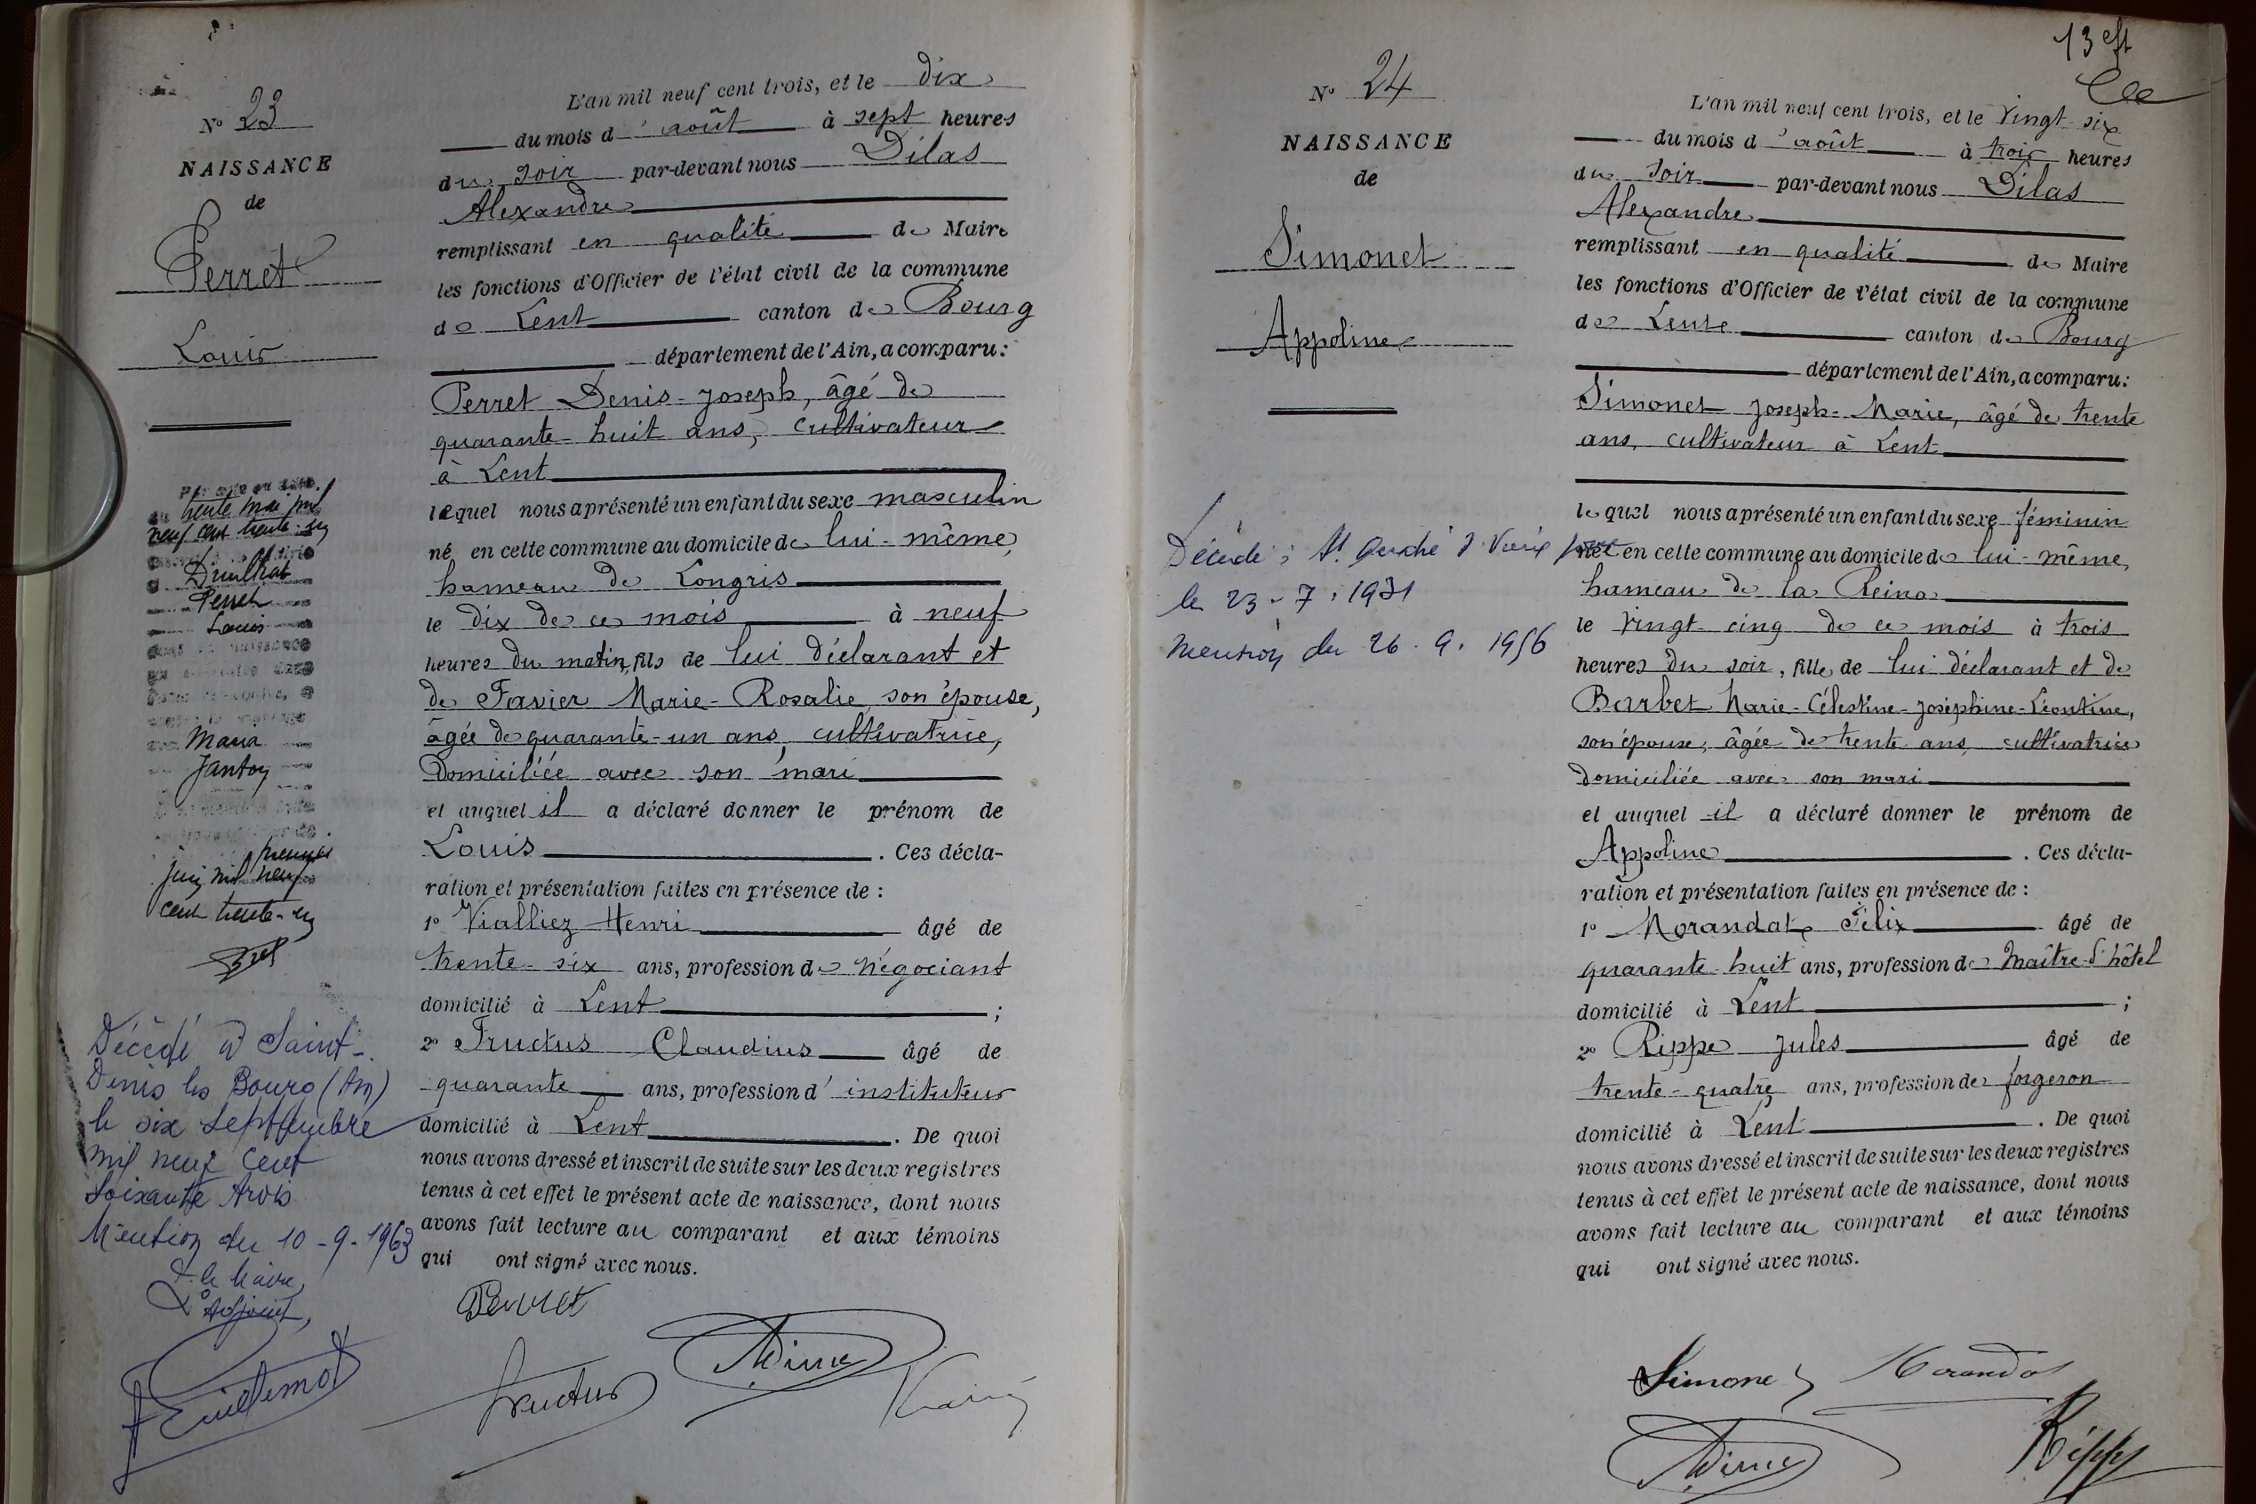 N° 23
NAISSANCE
de
Perret
Louis
trente mai mil
neuf cent trente-
Druillat
Perret
Louis
Maria
Janton
premier
juin mil neuf
cent trente-
Décédé à Saint-
Denis les Bourg (Ain)
le six Septembre
mil neuf cent
soixante trois
Mention du 10-9-1963
P. le Maire,
L'Adjoint,
L'an mil neuf cent trois, et le dix
du mois d'août à sept heures
du soir par-devant nous Dilas
Alexandre
remplissant en qualité de Maire
les fonctions d'Officier de l'état civil de la commune
de Lent canton de Bourg
département de l'Ain, a comparu:
Perret Denis-Joseph, âgé de
quarante-huit ans, cultivateur
à Lent
lequel nous a présenté un enfant du sexe masculin
né en cette commune au domicile de lui-même,
hameau de Longris
le dix de ce mois à neuf
heures du matin, fils de lui déclarant et
de Favier Marie-Rosalie, son épouse,
âgée de quarante-un ans, cultivatrice,
domiciliée avec son mari
et auquel il a déclaré donner le prénom de
Louis. Ces décla-
ration et présentation faites en présence de :
1° Vialliez Henri âgé de
trente-six ans, profession de négociant
domicilié à Lent ;
2° Fructus Claudius âgé de
quarante ans, profession d'instituteur
domicilié à Lent. De quoi
nous avons dressé et inscrit de suite sur les deux registres
tenus à cet effet le présent acte de naissance, dont nous
avons fait lecture au comparant et aux témoins
qui ont signé avec nous.
Perret
Fructus
13
N° 24
NAISSANCE
de
Simonet
Appoline
Décédée à St André
le 23-7-1931
mention du 26.9.1956
L'an mil neuf cent trois, et le vingt-six
du mois d'août à trois heures
du soir par-devant nous Dilas
Alexandre
remplissant en qualité de Maire
les fonctions d'Officier de l'état civil de la commune
de Lent canton de Bourg
département de l'Ain, a comparu:
Simonet Joseph-Marie, âgé de trente
ans, cultivateur à Lent
lequel nous a présenté un enfant du sexe féminin
né en cette commune au domicile de lui-même,
hameau de la Reina
le vingt-cinq de ce mois à trois
heures du soir, fille de lui déclarant et de
Barbet Marie-Célestine-Joséphine-Léontine,
son épouse, âgée de trente ans, cultivatrice
domiciliée avec son mari
et auquel il a déclaré donner le prénom de
Appoline. Ces décla-
ration et présentation faites en présence de :
1° Morandat Félix âgé de
quarante-huit ans, profession de Maître d'hôtel
domicilié à Lent ;
2° Rippe Jules âgé de
trente-quatre ans, profession de forgeron
domicilié à Lent. De quoi
nous avons dressé et inscrit de suite sur les deux registres
tenus à cet effet le présent acte de naissance, dont nous
avons fait lecture au comparant et aux témoins
qui ont signé avec nous.
Simonet Morandat
Rippe